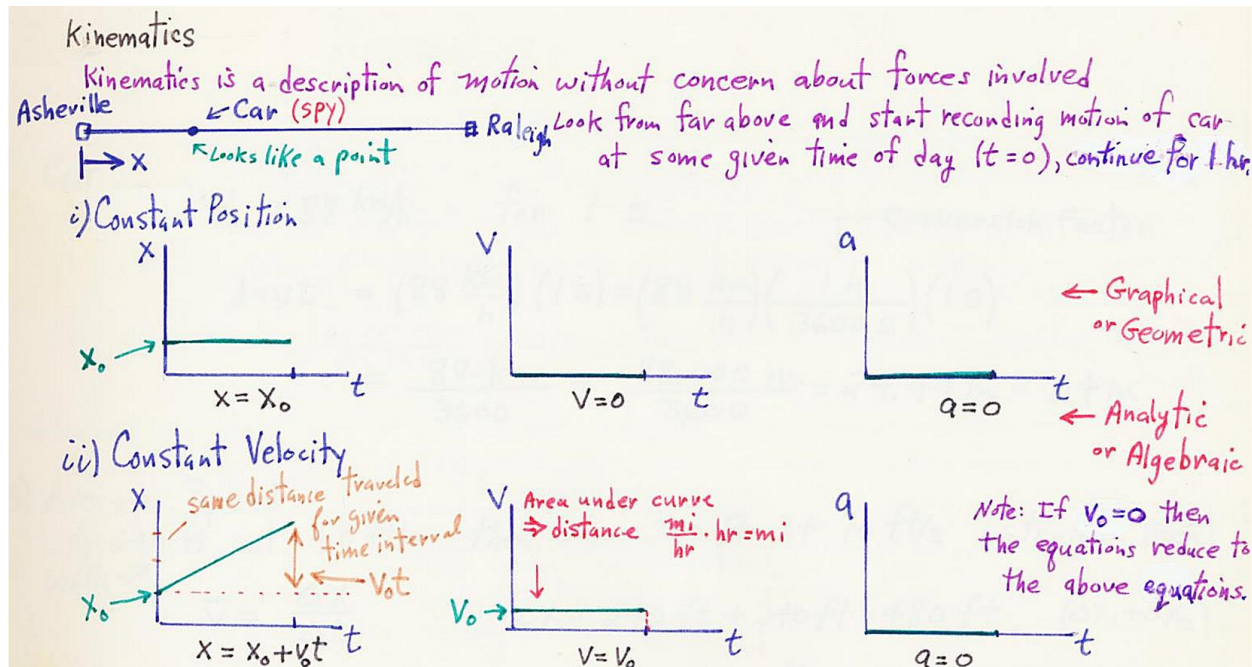 Kinematics
Kinematics is a description of motion without concern about forces involved
Asheville
← Car (SPY)
Raleigh
Look from far above and start recording motion of car
↖ Looks like a point
at some given time of day (t=0), continue for 1 hr.
→ X
i) Constant Position
X
V
a
← Graphical
or Geometric
X₀ →
t
t
t
X = X₀
V=0
a=0
← Analytic
or Algebraic
ii) Constant Velocity
X
same distance traveled
for given
time interval
← V₀t
X₀ →
t
X = X₀+V₀t
V
Area under curve
⇒ distance mi/hr · hr = mi
V₀ →
t
V = V₀
a
t
a=0
Note: If V₀=0 then
the equations reduce to
the above equations.